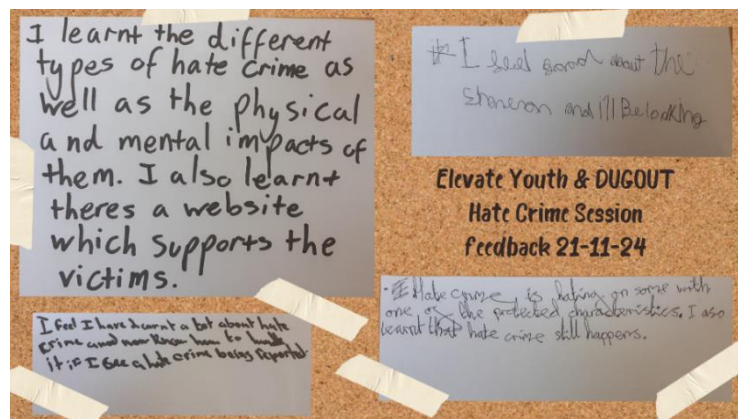 I learnt the different
types of hate crime as
well as the physical
and mental impacts of
them. I also learnt
theres a website
which supports the
victims.
I feel I have learnt a lot about hate
crime and now know how to handle
it if I see a hate crime being reported
I feel good about the
and I'll Be looking
Elevate Youth & DUGOUT
Hate Crime Session
feedback 21-11-24
Hate crime is hating on some with
one or the protected characteristics. I also
learnt that hate crime still happens.